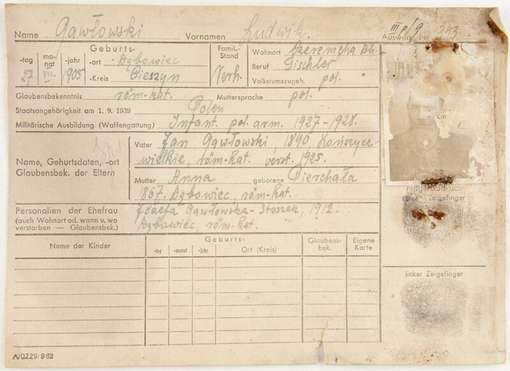 Name Gawłowski Vornamen Ludwik
Geburts-
-tag mo-nat -jahr -ort Dębowiec
27 VII. 905 -Kreis Cieszyn
Famil.-Stand
Verh.
Wohnort
Beruf Tischler
Volkstumszugeh. pol.
Glaubensbekenntnis röm-kat. Muttersprache pol.
Staatsangehörigkeit am 1. 9. 1939 Polen
Militärische Ausbildung (Waffengattung) Infant. pol. arm. 1927-1928.
Name, Geburtsdaten, -ort
Glaubensbek. der Eltern
Vater Jan Gawłowski, 1890, Kończyce
wielkie, röm-kat. verst. 1925.
Mutter Anna geborene
1867. Dębowiec, röm-kat.
Personalien der Ehefrau
(auch Wohnort od. wann u. wo
verstorben — Glaubensbek.)
Józefa Gawłowska-Stoszek, 1912.
Dębowiec, röm-kat.
Name der Kinder
Geburts-
-tag -monat -jahr Ort (Kreis)
Glaubens-
bek.
Eigene
Karte
Zeigefinger
linker Zeigefinger